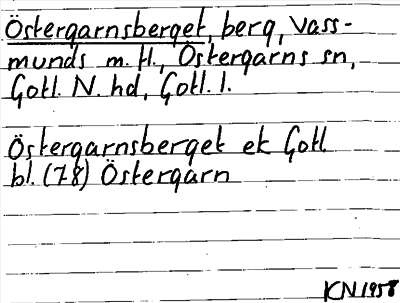 Östergarnsberget, berg, Vass-
munds m. fl., Östergarns sn,
Gotl. N. hd, Gotl. l.
Östergarnsberget ek Gotl
bl. (78) Östergarn
KN 1958